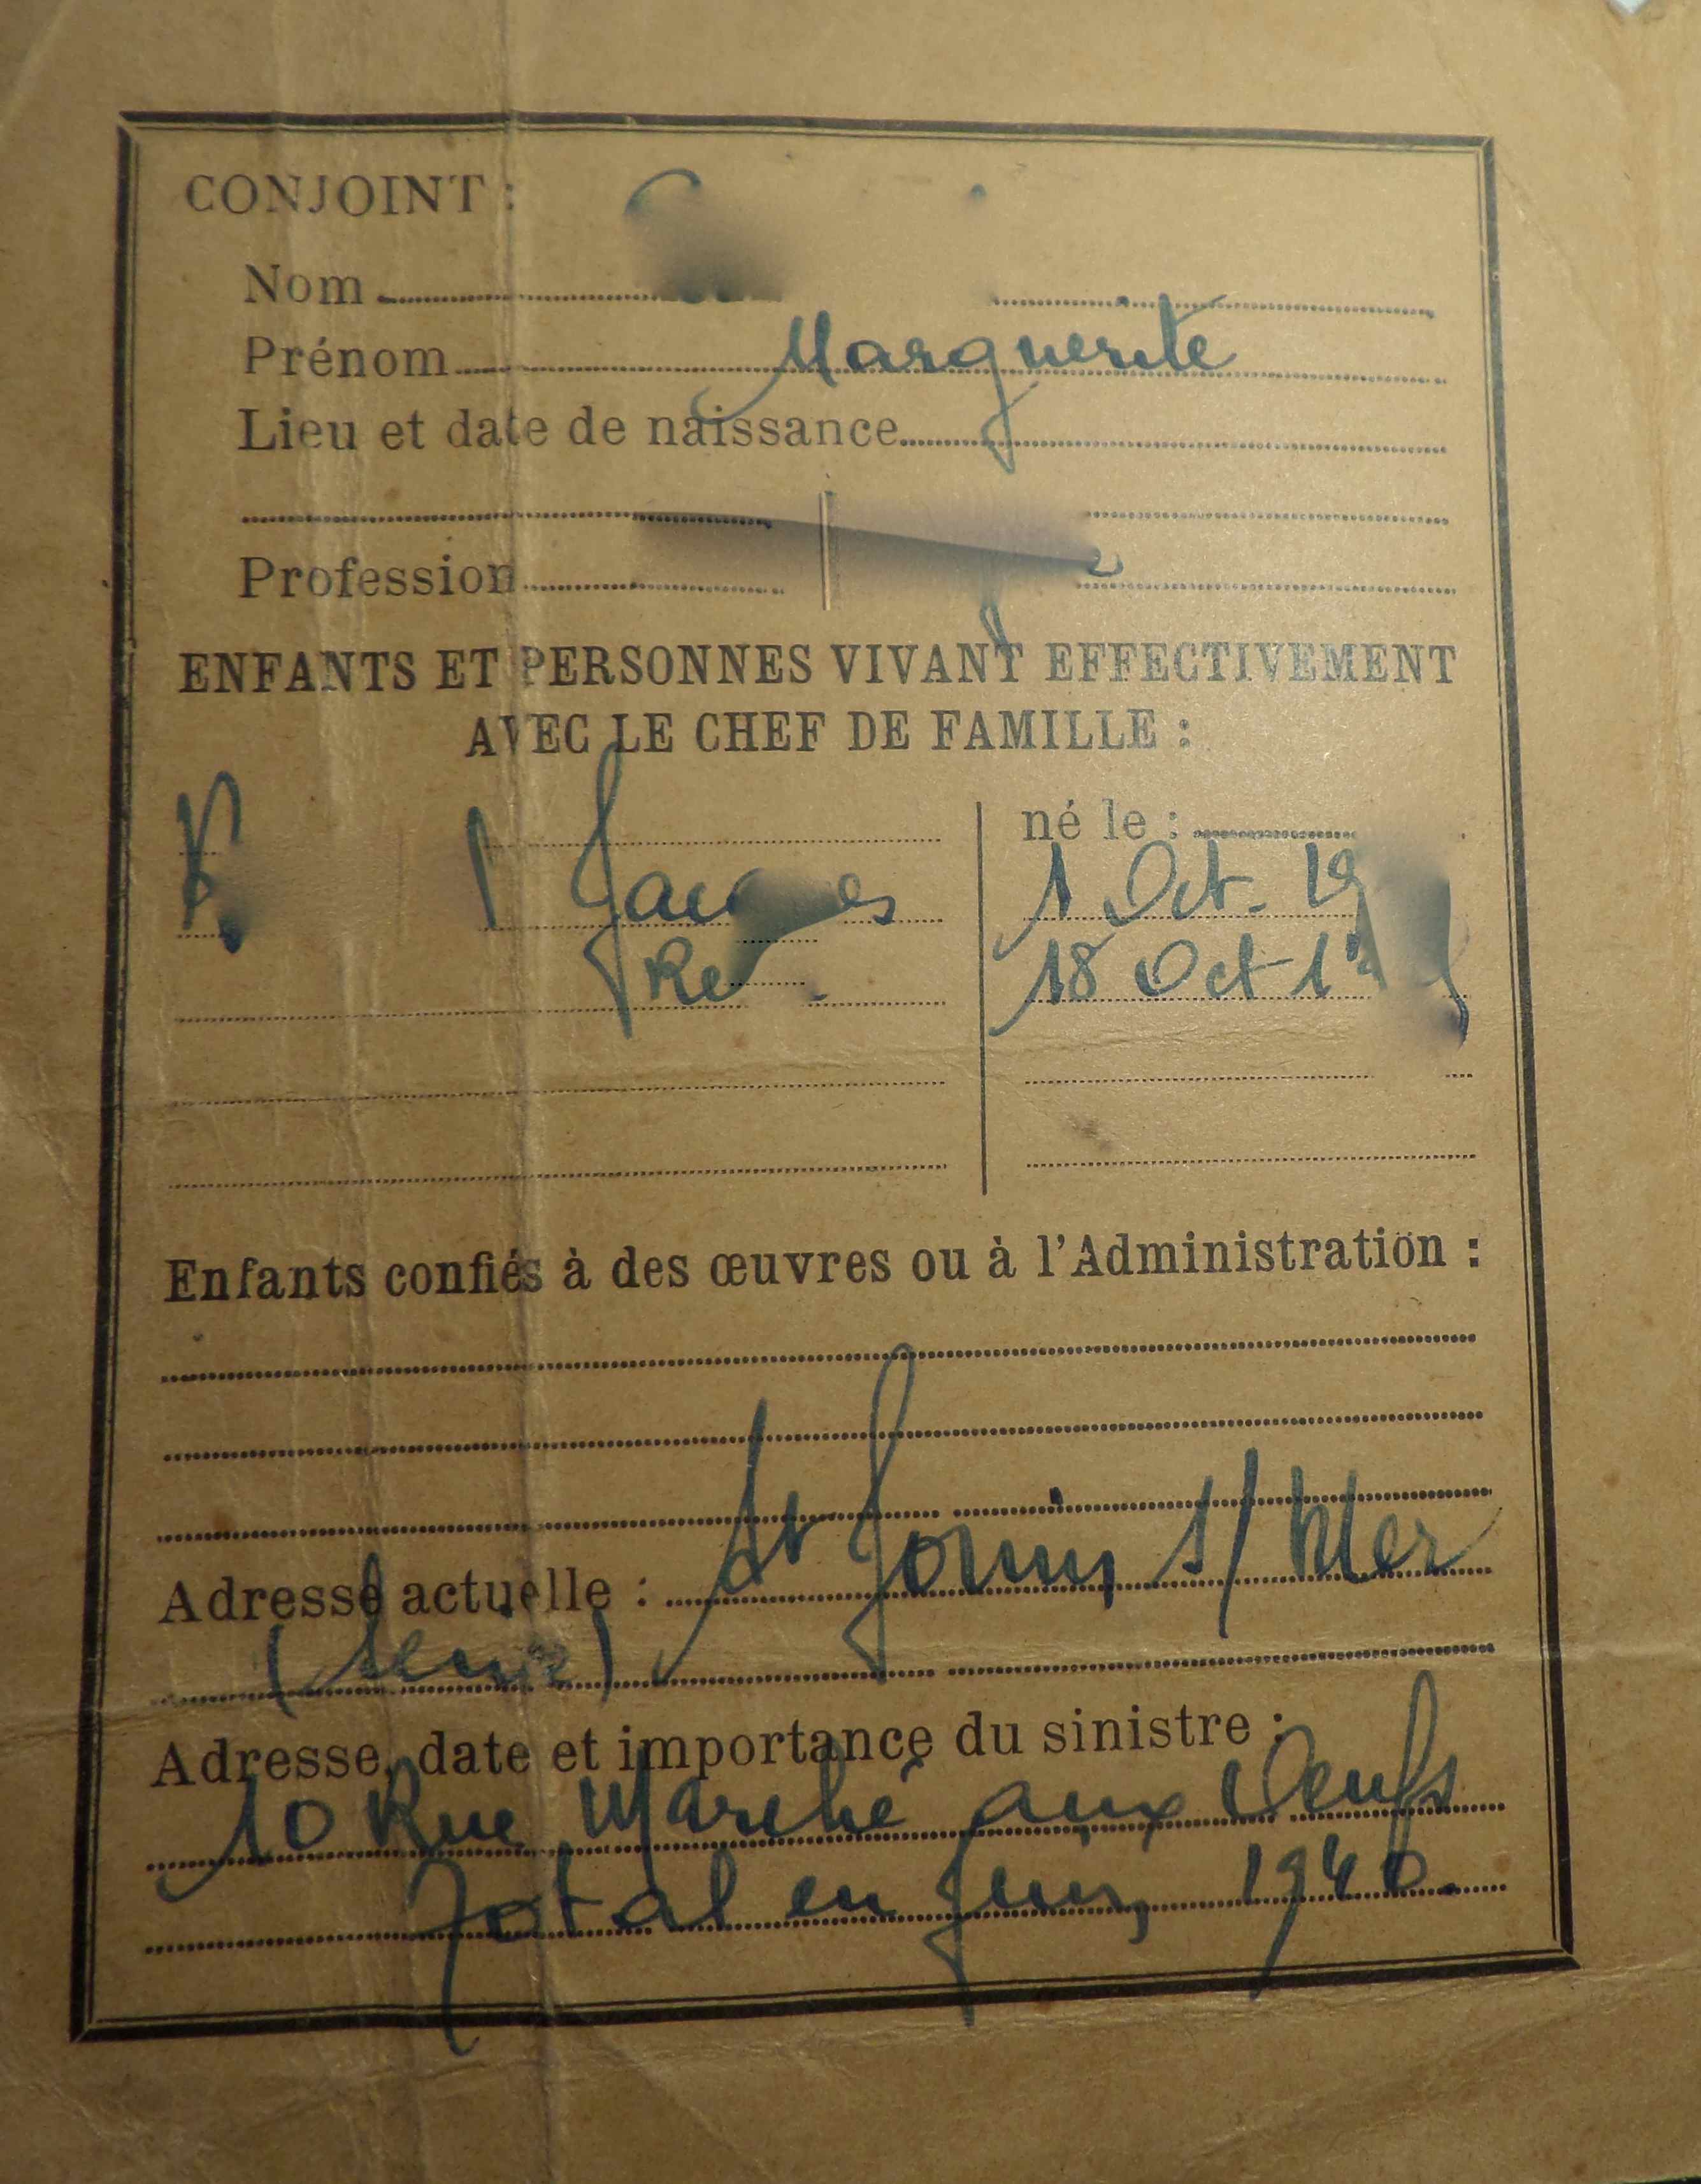 CONJOINT :
Nom
Prénom Marguerite
Lieu et date de naissance
Profession
ENFANTS ET PERSONNES VIVANT EFFECTIVEMENT
AVEC LE CHEF DE FAMILLE :
né le :
Jacques 1 Oct. 19
18 Oct 1
Enfants confiés à des œuvres ou à l'Administration :
Adresse actuelle : St Jouin s/ Mer
Adresse, date et importance du sinistre :
10 Rue Marché aux Oeufs
Total en Juin 1940.